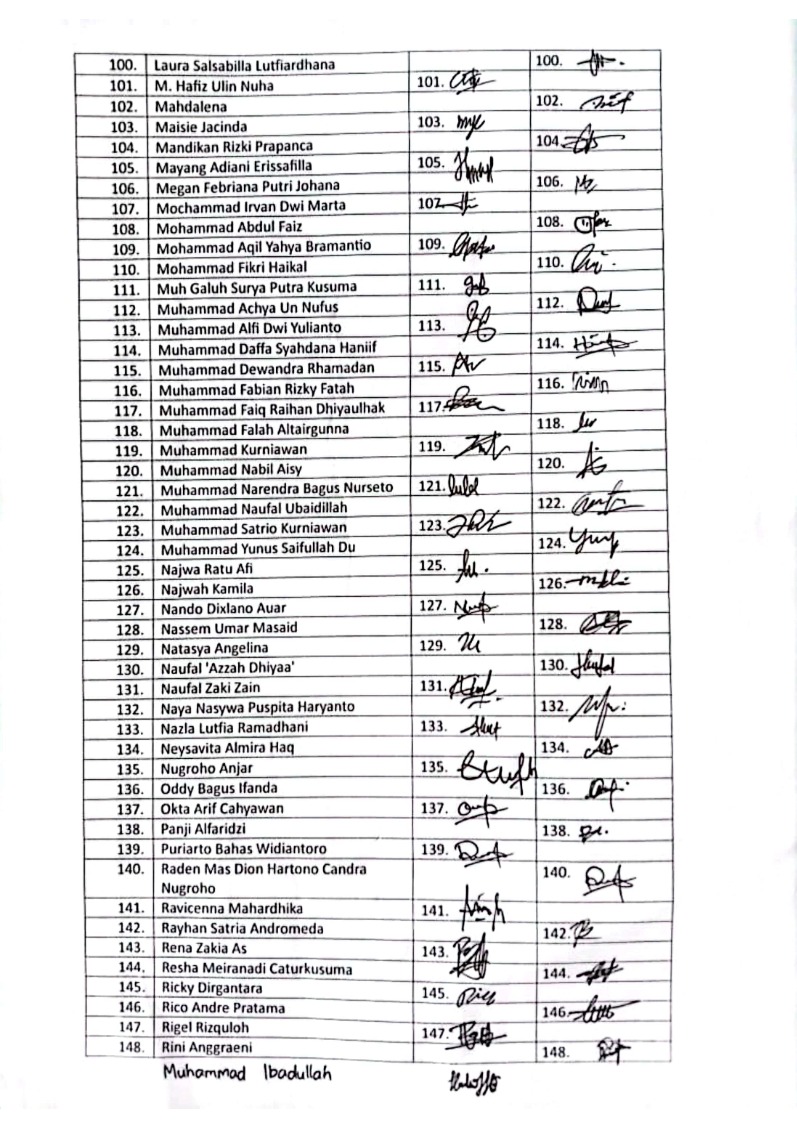 100. Laura Salsabilla Lutfiardhana 100.
101. M. Hafiz Ulin Nuha 101.
102. Mahdalena 102.
103. Maisie Jacinda 103.
104. Mandikan Rizki Prapanca 104.
105. Mayang Adiani Erissafilla 105.
106. Megan Febriana Putri Johana 106.
107. Mochammad Irvan Dwi Marta 107.
108. Mohammad Abdul Faiz 108.
109. Mohammad Aqil Yahya Bramantio 109.
110. Mohammad Fikri Haikal 110.
111. Muh Galuh Surya Putra Kusuma 111.
112. Muhammad Achya Un Nufus 112.
113. Muhammad Alfi Dwi Yulianto 113.
114. Muhammad Daffa Syahdana Haniif 114.
115. Muhammad Dewandra Rhamadan 115.
116. Muhammad Fabian Rizky Fatah 116.
117. Muhammad Faiq Raihan Dhiyaulhak 117.
118. Muhammad Falah Altairgunna 118.
119. Muhammad Kurniawan 119.
120. Muhammad Nabil Aisy 120.
121. Muhammad Narendra Bagus Nurseto 121.
122. Muhammad Naufal Ubaidillah 122.
123. Muhammad Satrio Kurniawan 123.
124. Muhammad Yunus Saifullah Du 124.
125. Najwa Ratu Afi 125.
126. Najwah Kamila 126.
127. Nando Dixlano Auar 127.
128. Nassem Umar Masaid 128.
129. Natasya Angelina 129.
130. Naufal 'Azzah Dhiyaa' 130.
131. Naufal Zaki Zain 131.
132. Naya Nasywa Puspita Haryanto 132.
133. Nazla Lutfia Ramadhani 133.
134. Neysavita Almira Haq 134.
135. Nugroho Anjar 135.
136. Oddy Bagus Ifanda 136.
137. Okta Arif Cahyawan 137.
138. Panji Alfaridzi 138.
139. Puriarto Bahas Widiantoro 139.
140. Raden Mas Dion Hartono Candra 140.
Nugroho
141. Ravicenna Mahardhika 141.
142. Rayhan Satria Andromeda 142.
143. Rena Zakia As 143.
144. Resha Meiranadi Caturkusuma 144.
145. Ricky Dirgantara 145.
146. Rico Andre Pratama 146.
147. Rigel Rizquloh 147.
148. Rini Anggraeni 148.
Muhammad Ibadullah